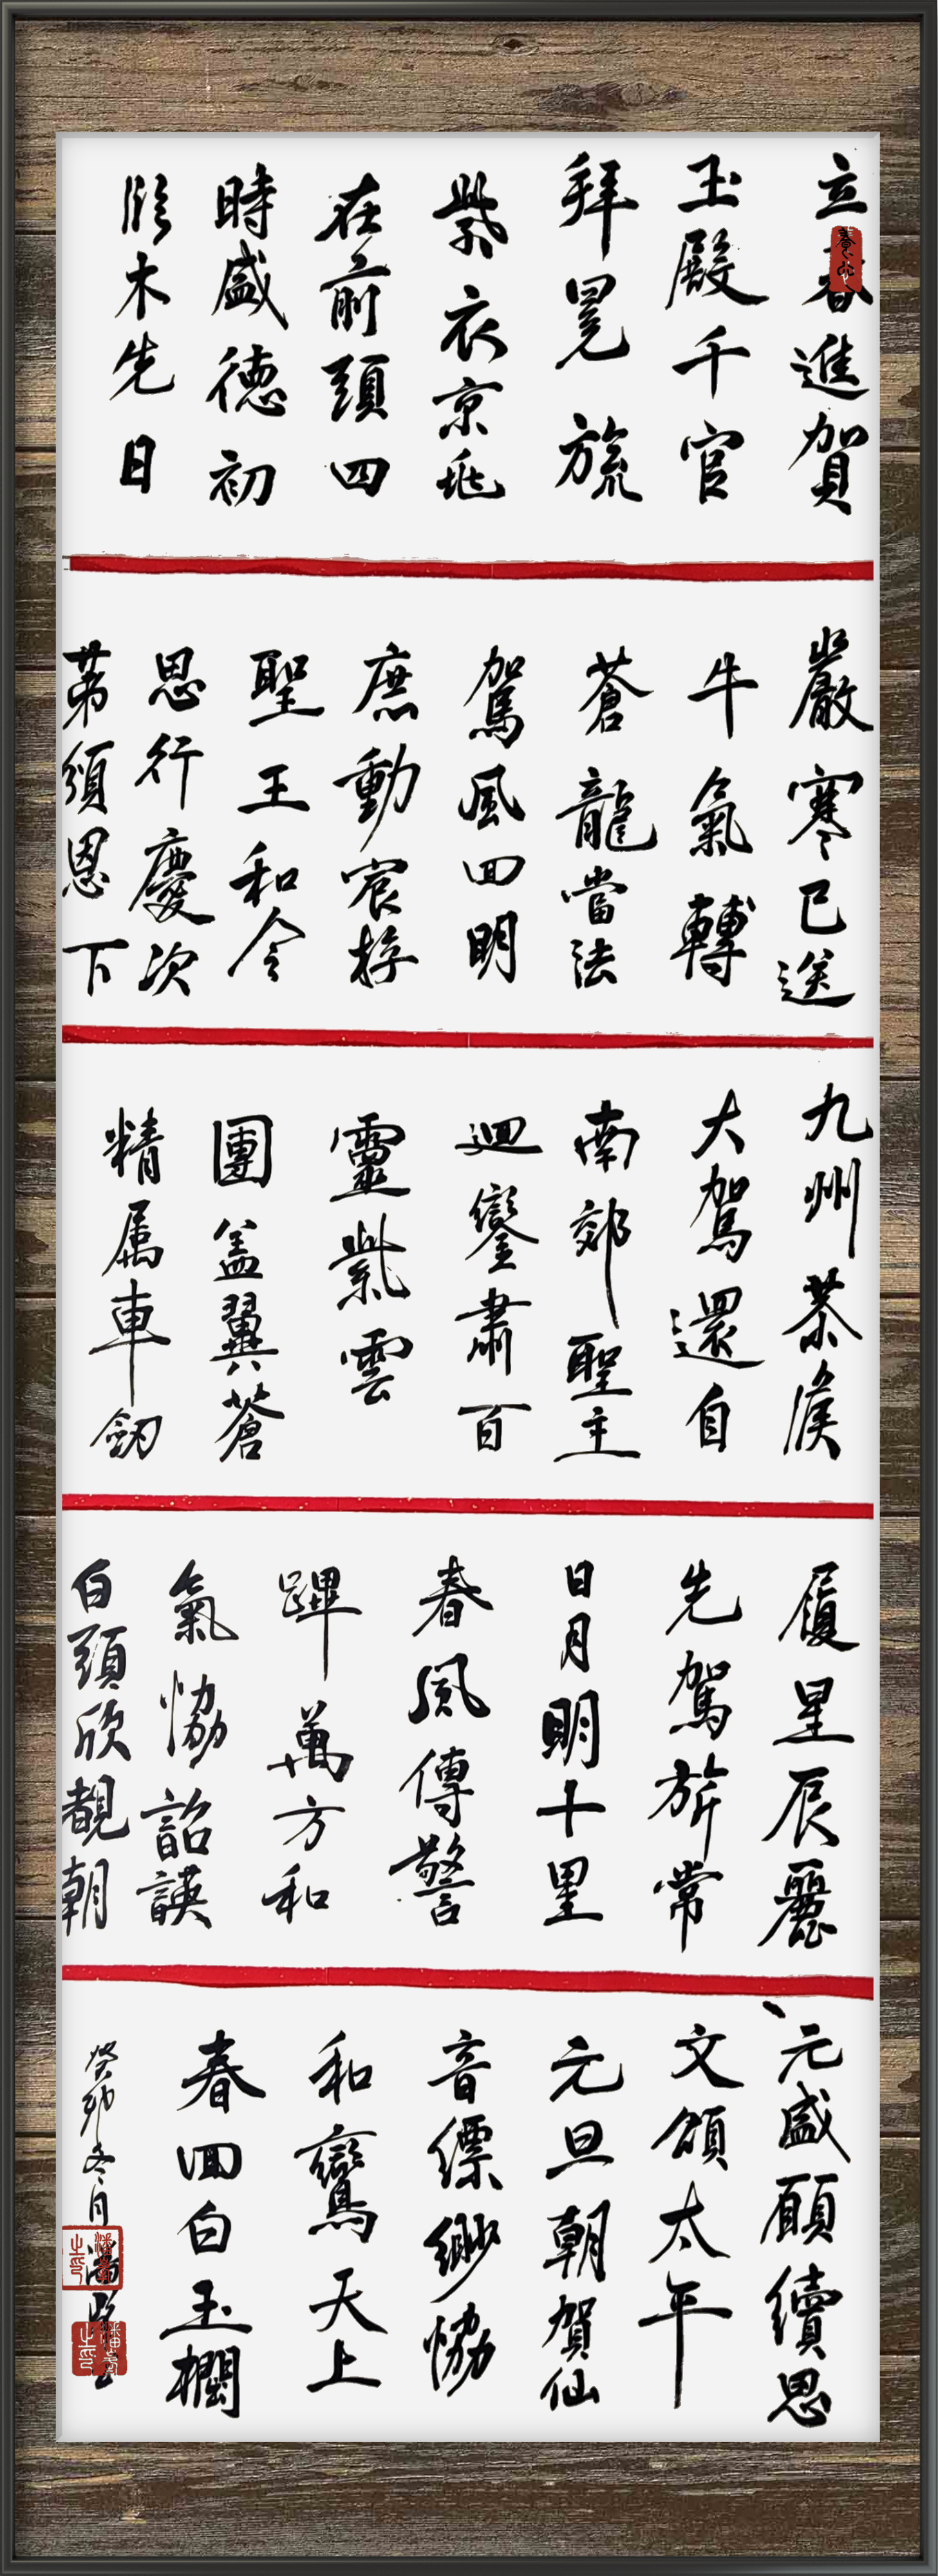 立春進賀
玉殿千官
拜冕旒
紫衣京兆
在前頭四
時盛德初
臨木先日
嚴寒已送
牛氣轉
蒼龍當法
駕風回明
庶動宸遊
聖王和令
思行慶次
第須恩下
九州恭候
大駕還自
南郊聖主
迴鑾肅百
靈紫雲
團蓋翼蒼
精属車劍
履星辰麗
先駕旂常
日月明十里
春風傳警
蹕萬方和
氣協韶韺
白頭欣覩朝
元盛願續思
文頌太平
元旦朝賀仙
音縹緲協
和鸞天上
春回白玉欄
癸卯冬月